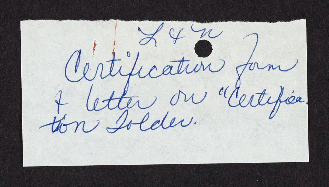 L & N
Certification form
& letter on "Certifica
tion Folder.